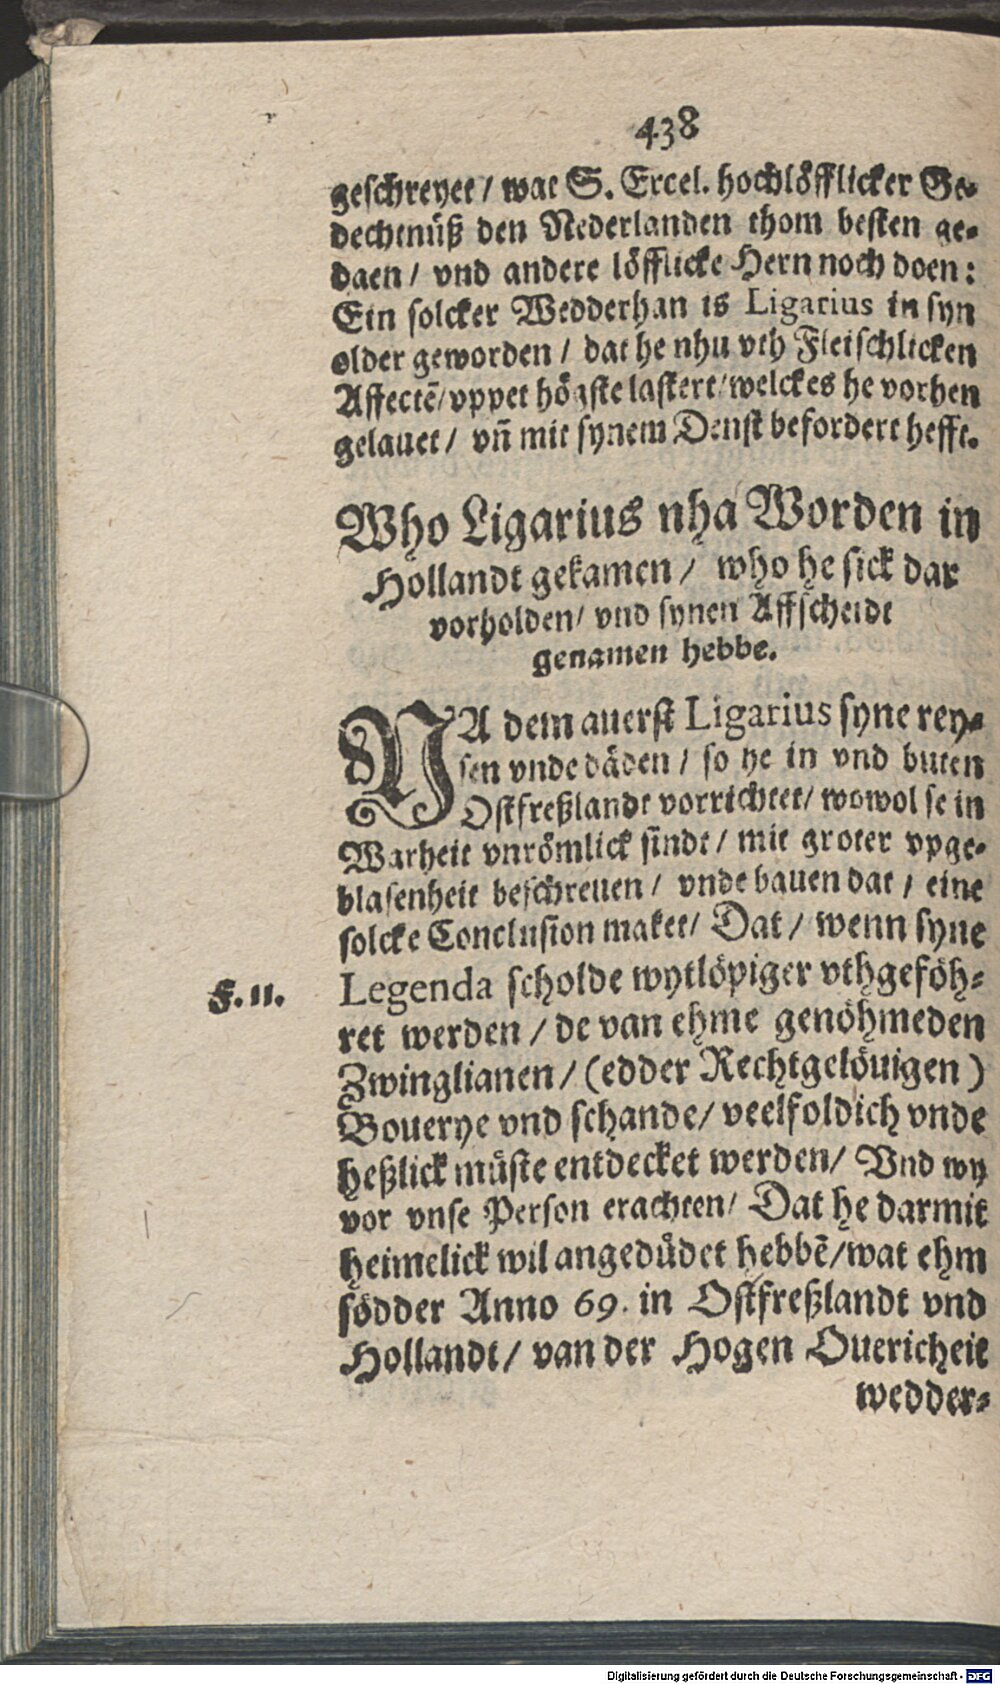 438
geschreyet / wat S. Excel. hochlöfflicker Ge-
dechtnüß den Nederlanden thom besten ge-
daen / vnd andere löfflicke Hern noch doen:
Ein solcker Wedderhan is Ligarius in syn
older geworden / dat he nhu vth Fleischlicken
Affectē / vppet högste lastert / welckes he vorhen
gelauet / vñ mit synem Denst befordert hefft.
Who Ligarius nha Worden in
Hollandt gekamen / who he sick dar
vorholden / vnd synen Affscheidt
genamen hebbe.
NA dem auerst Ligarius syne rey-
sen vnde däden / so he in vnd buten
Ostfreßlandt vorrichtet / wowol se in
Warheit vnrömlick sindt / mit groter vpge-
blasenheit beschreuen / vnde bauen dat / eine
solcke Conclusion maket / Dat / wenn syne
F. 11.
Legenda scholde wytlöpiger vthgeföh-
ret werden / de van ehme genöhmeden
Zwinglianen / (edder Rechtgelöuigen)
Bouerye vnd schande / veelfoldich vnde
heßlick müste entdecket werden / Vnd wy
vor vnse Person erachten / Dat he darmit
heimelick wil angedüdet hebbē / wat ehm
södder Anno 69. in Ostfreßlandt vnd
Hollandt / van der Hogen Ouericheit
wedder-
Digitalisierung gefördert durch die Deutsche Forschungsgemeinschaft - DFG